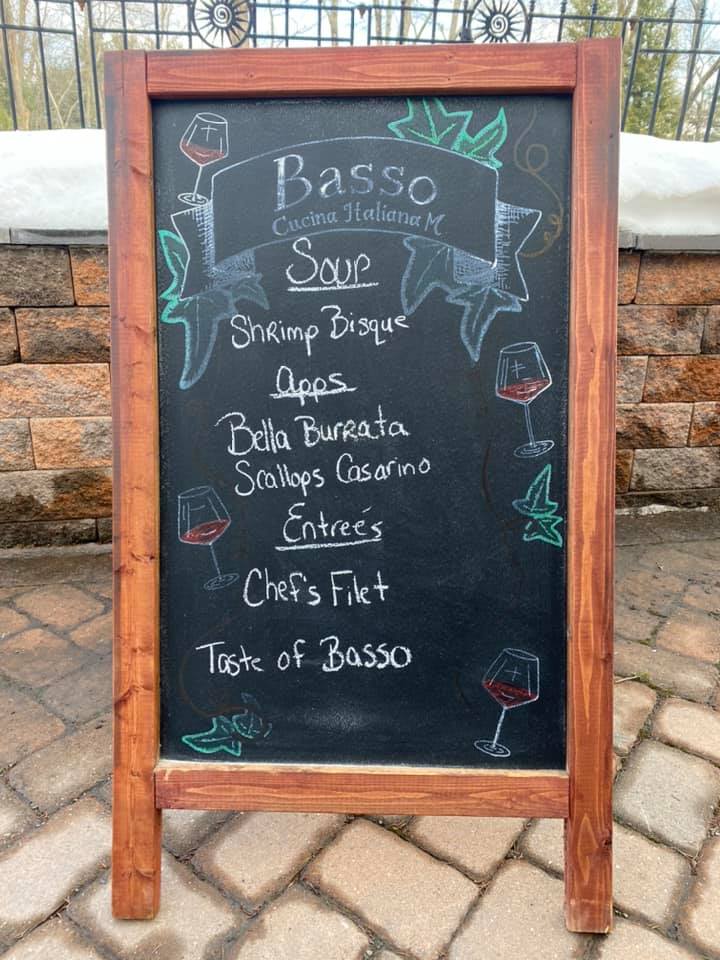 Basso
Cucina Italiana M
Soup
Shrimp Bisque
Apps
Bella Burrata
Scallops Casarino
Entreé's
Chef's Filet
Taste of Basso